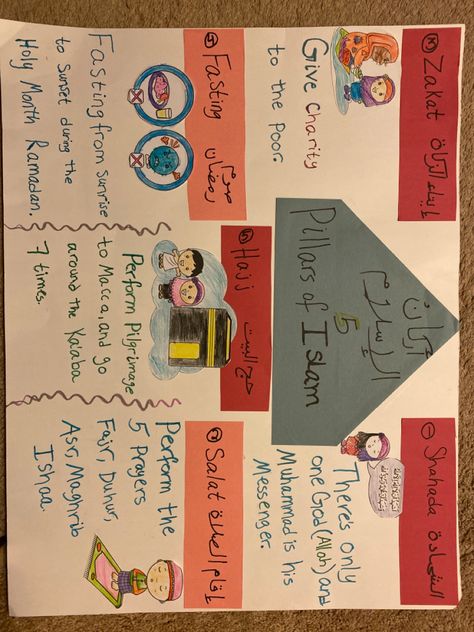 Zakat إيتاء الزكاة
Give Charity
to the poor.
أركان
الإسلام
5
Pillars of Islam
1 Shahada الشهادة
There's only
one God (Allah) and
Muhammad is his
Messenger.
Fasting صوم
رمضان
Fasting from Sunrise
to Sunset during the
Holy Month Ramadan.
Hajj
حج البيت
Perform Pilgrimage
to Macca, and go
around the Kaaba
7 times.
2 Salat إقام الصلاة
Perform the
5 Prayers
Fajr, Duhur,
Asr, Maghrib
Ishaa